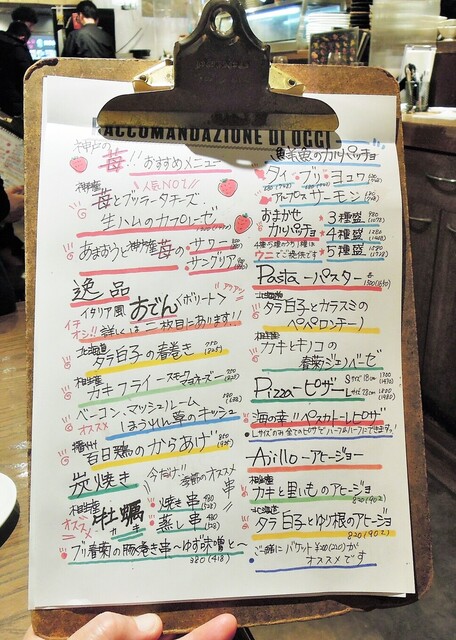 RACCOMANDAZIONE DI OGGI
神戸の苺!! おすすめメニュー
人気NO1!!
相野産
苺とブッラータチーズ
生ハムのカプレーゼ
あまおうと神戸産苺の サワー
サングリア
逸品
イタリア風 おでん〈ボリート〉
イチオシ!! 詳しくは二枚目にあります!!
北海道
タラ白子の春巻き 750 (825)
相生産
カキフライ ースモークマヨネーズー
ベーコン、マッシュルーム、
オススメ ほうれん草のキッシュ
播州
百日鶏のからあげ
炭焼き 今だけ!! 季節のオススメ串
相生産
オススメ 牡蠣
カキ
焼き串 480 (528)
蒸し串 480 (528)
ブリ春菊の豚巻き串〜ゆず味噌と〜
380 (418)
鮮魚のカルパッチョ
タイ・ブリ・ヨコワ
アルプスサーモン
おまかせ
カルパッチョ
3種盛 980 (1078)
4種盛
5種盛
ウニでご提供です
Pasta ーパスター
北海道
タラ白子とカラスミの
ペペロンチーノ
相生産
カキとキノコの
春菊ジェノベーゼ
Pizza ーピザー
海の幸!! ペスカトーレピザ
Lサイズのお食事のピザでハーフ&ハーフにできます!
Ajillo ーアヒージョー
相生産
カキと里いものアヒージョ
820 (902)
北海道
タラ白子とゆり根のアヒージョ
820 (902)
ご一緒にバケット¥200(220)が
オススメです